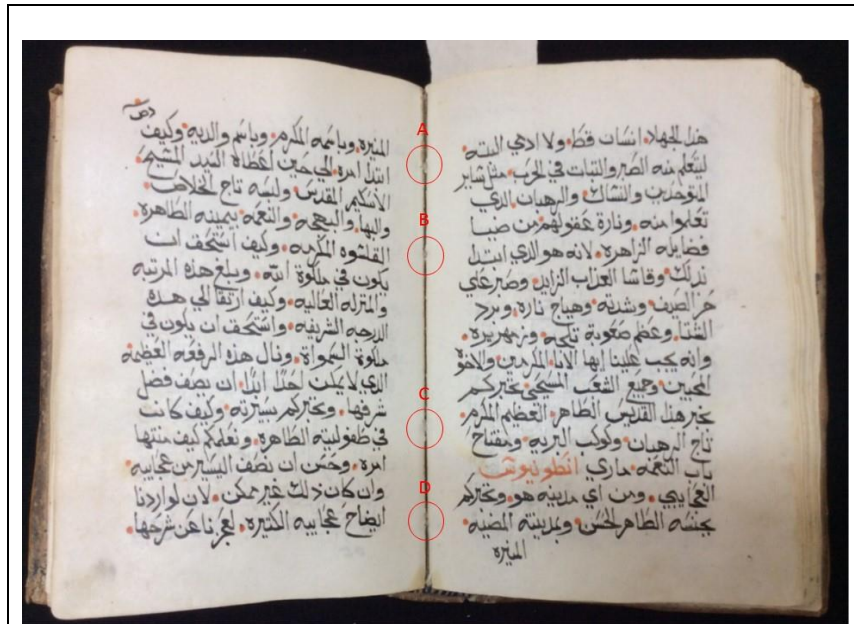 هذا الجهاد انسان قط ولا ادمي البته
ليتعلم منه الصبر والتبات في الحرب مثل ساير
المتوحدين والنساك والرهبان الذي
تعلموا منه ونارة عقولهم من ضيا
فضايله الزاهره لانه هو الذي ابتدا
بذلك وقاسا العذاب الزايد وصبر علي
حر الصيف وشدته وهياج ناره وبرد
الشتا وعظم صعوبة تلجه وزمهريره
وانه يجب علينا ايها الابا المكرمين والاخوة
المحبين وجميع الشعب المسيحي نخبركم
بخبر هذا القديس الطاهر العظيم المكرم
تاج الرهبان وكوكب البريه ومفتاح
باب النعمه ماري انطونيوس
العجايبي ومن اي مدينه هو ونخبركم
بجنسه الطاهر الحسن وبمدينته المضيه
المنيره
المنيره وباسمه المكرم وباسم والديه وكيف
ابتدا امره الي حين اعطاه السيد المسيح
الاسكيم المقدس ولبسه تاج الخلاص
والبها والبهجه والنعمه بيمينه الطاهره
القلسوه المكرمه وكيف استحق ان
يكون في ملكوة الله وبلغ هذه المرتبه
والمنزله العاليه وكيف ارتقا الي هذه
الدرجه الشريفه واستحق ان يكون في
ملكوة السمواة ونال هذه الرفعه العظيمه
الذي لا يمكن احدا ابدا ان يصف فضل
شرفها ونخبركم بسيرته وكيف كانت
في طفوليته الطاهره ونعلمكم كيف منتها
امره وحسن ان نصف اليسير من عجايبه
وان كان ذلك غير ممكن لان لو اردنا
ايضاح عجايبه الكتيره لعجزنا عن شرحها
A
B
C
D